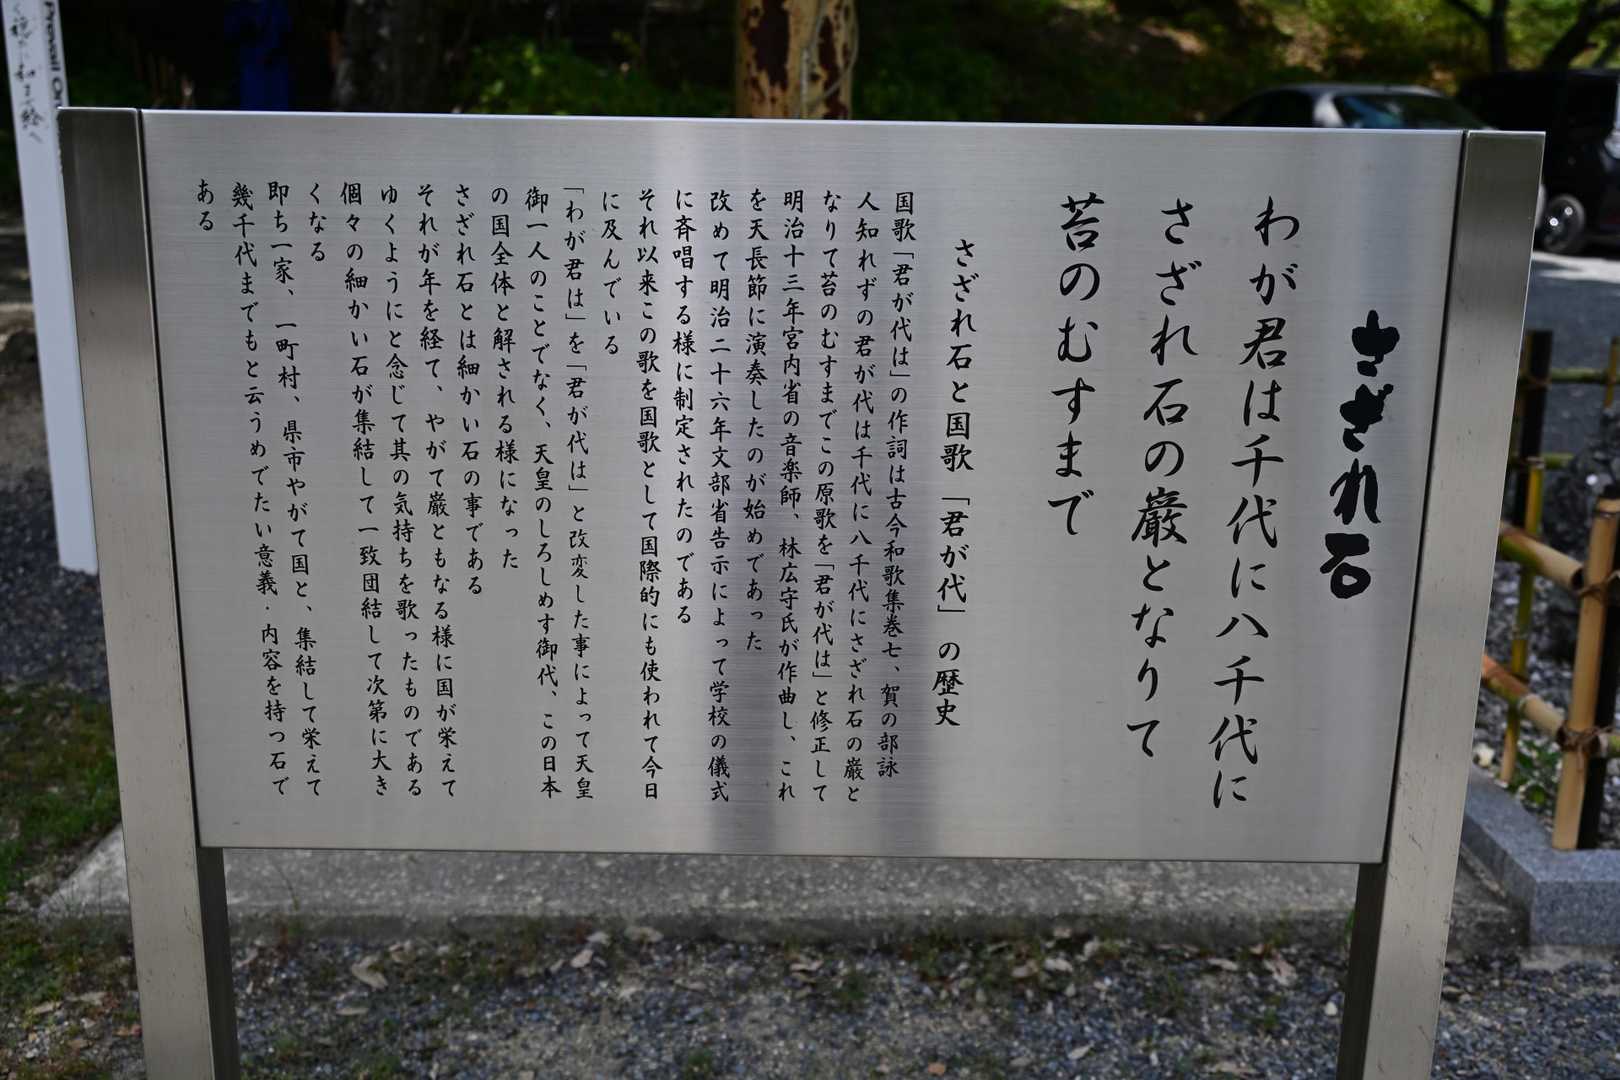 さざれ石
わが君は千代に八千代に
さざれ石の巌となりて
苔のむすまで
さざれ石と国歌「君が代」の歴史
国歌「君が代は」の作詞は古今和歌集巻七、賀の部詠
人知れずの君が代は千代に八千代にさざれ石の巌と
なりて苔のむすまでこの原歌を「君が代は」と修正して
明治十三年宮内省の音楽師、林広守氏が作曲し、これ
を天長節に演奏したのが始めであった
改めて明治二十六年文部省告示によって学校の儀式
に斉唱する様に制定されたのである
それ以来この歌を国歌として国際的にも使われて今日
に及んでいる
「わが君は」を「君が代は」と改変した事によって天皇
御一人のことでなく、天皇のしろしめす御代、この日本
の国全体と解される様になった
さざれ石とは細かい石の事である
それが年を経て、やがて巌ともなる様に国が栄えて
ゆくようにと念じて其の気持ちを歌ったものである
個々の細かい石が集結して一致団結して次第に大き
くなる
即ち一家、一町村、県市やがて国と、集結して栄えて
幾千代までもと云うめでたい意義・内容を持つ石で
ある